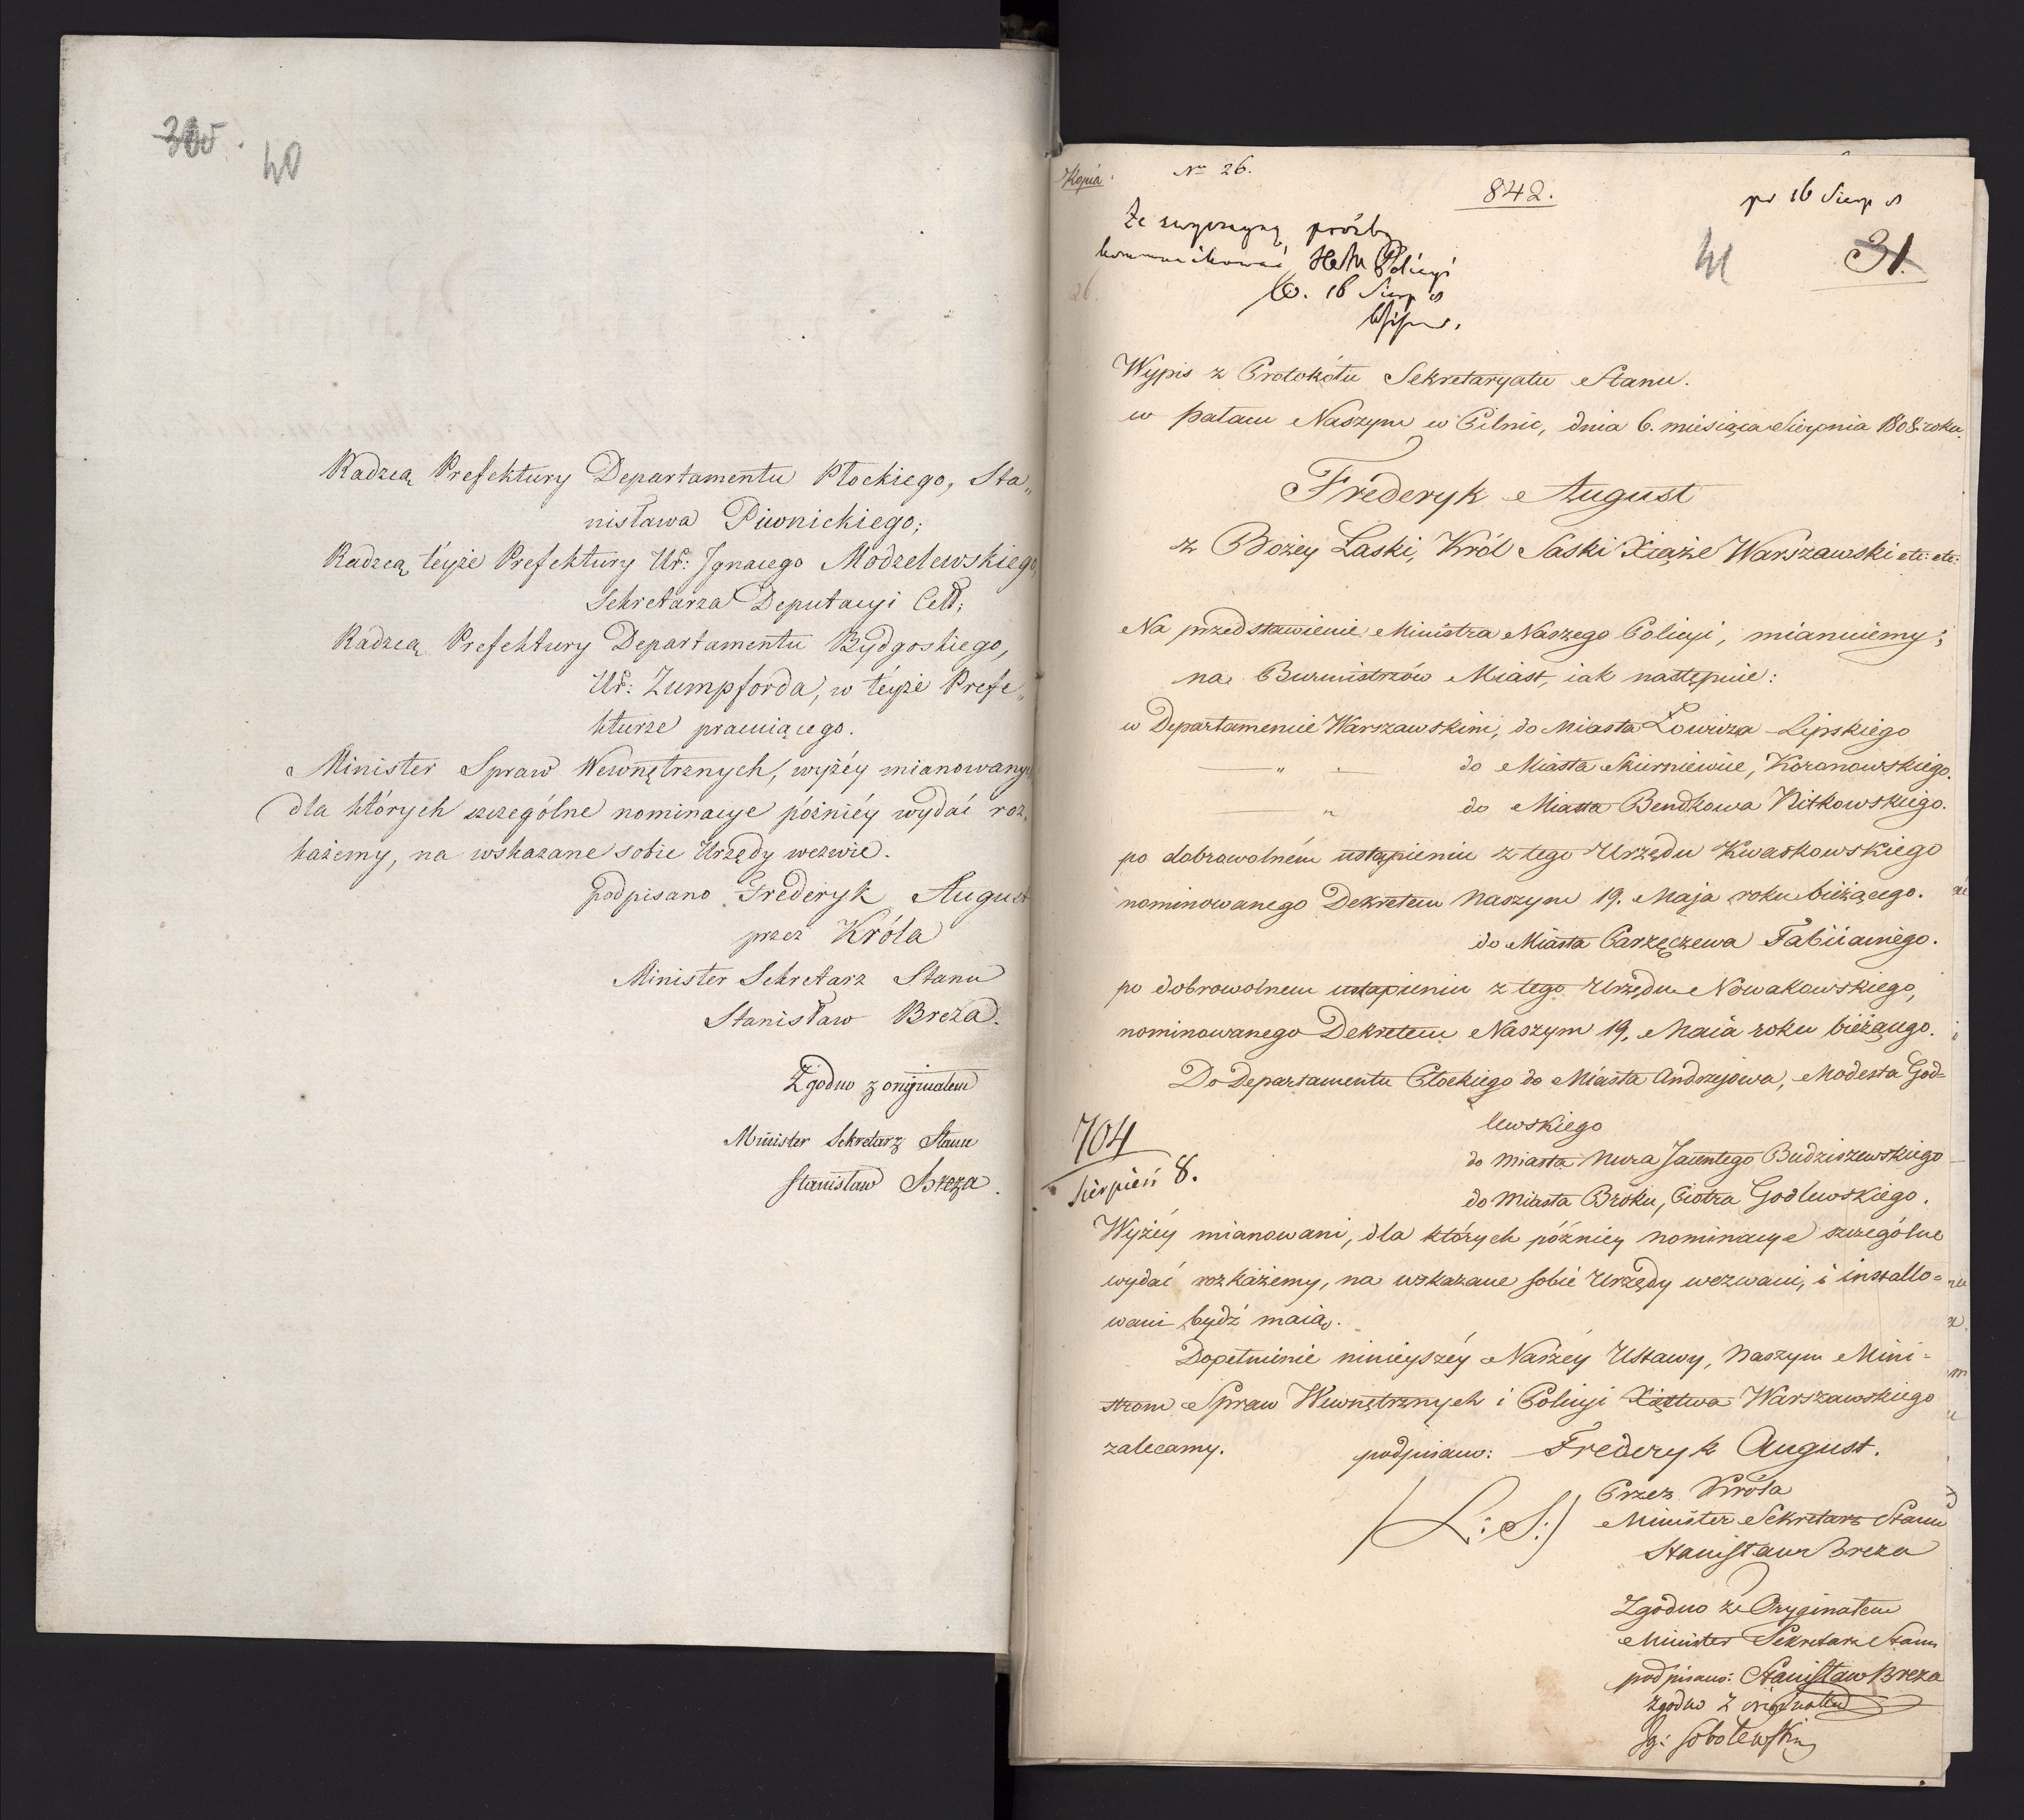 40
Radzcą Prefektury Departamentu Płockiego, Sta„
nisława Piwnickiego;
Radzcą téyże Prefektury Ur: Jgnacego Modzelewskiego,
Sekretarza Deputacyi Cell;
Radzcą Prefektury Departamentu Bydgoskiego,
Ur: Zumpforda, w téyże Prefe„
kturze pracuiącego.
Minister Spraw Wewnętrznych, wyżéy mianowanych
dla których szczególne nominacye późniéy wydać roz„
każemy, na wskazane sobie Urzędy wezwie.
podpisano Frederyk August
przez Króla
Minister Sekretarz Stanu
Stanisław Breza.
Zgodno z originałem
Minister Sekretarz Stanu
Stanisław Breza.
Kopia. No 26.
842.
pr 16 Sierp
Ze zwyczayną prośbą
kommunikować Polícyi
16 Sierp
41
31.
26.
Wypis z Protokółu Sekretaryatu Stanu.
w pałacu Naszym w Pilnic, dnia 6. miesiąca Sierpnia 1808. roku.
Frederyk August
z Bożey Łaski, Król Saski Xiąże Warszawski etc: etc:
Na przedstawienie Ministra Naszego Policyi, mianuiemy;
na Burmistrzów Miast, iak następuie:
w Departamencie Warszawskim, do Miasta Łowicza Lipskiego
— „ — do Miasta Skierniewic, Koranowskiego.
— „ do Miasta Bendkowa Nitkowskiego.
po dobrowolném ustąpieniu z tego Urzędu Kwaskowskiego
nominowanego Dekretem Naszym 19. Maja roku bieżącego.
do Miasta Parzęczewa Fabiianiego.
po dobrowolnem ustąpieniu z tego Urzędu Nowakowskiego,
nominowanego Dekretem Naszym 19. Maia roku bieżącego.
Do Departamentu Płockiego do Miasta Andrzejowa, Modesta God=
lewskiego
704
Sierpień 8.
do Miasta Nura Jacentego Budziszewskiego
do Miasta Broku, Piotra Godlewskiego.
Wyżéy mianowani, dla których późniey nominacye szczególne
wydać rozkażemy, na wskazane sobie Urzędy wezwani, i installo=
wani bydź maią.
Dopełnienie ninieyszéy Naszéy Ustawy, Naszym Mini=
strom Spraw Wewnętrznych i Policyi Xięstwa Warszawskiego
zalecamy. podpisano: Frederyk August.
(L: S:)
Przez Króla
Minister Sekretarz Stanu
Stanisław Breza
Zgodno ze Oryginałem
Minister Sekretarz Stanu
podpisano: Stanisław Breza
Zgodno z originałem
Sobolewski